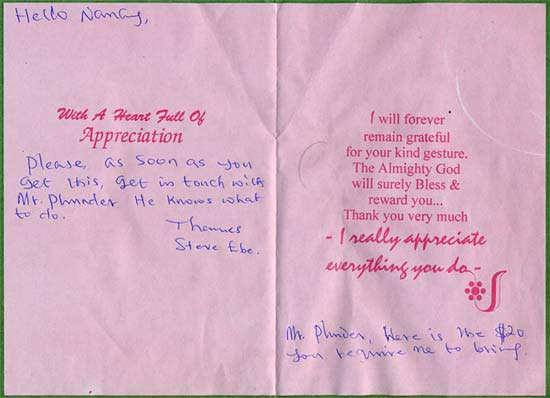 Hello Nancy,
With A Heart Full Of
Appreciation
Please, as soon as you
get this, get in touch with
Mr. Plunder He knows what
to do.
Thanks
Steve Ebe.
I will forever
remain grateful
for your kind gesture.
The Almighty God
will surely Bless &
reward you...
Thank you very much
- I really appreciate
everything you do -
Mr. Plunder, Here is the $20
you require me to bring.